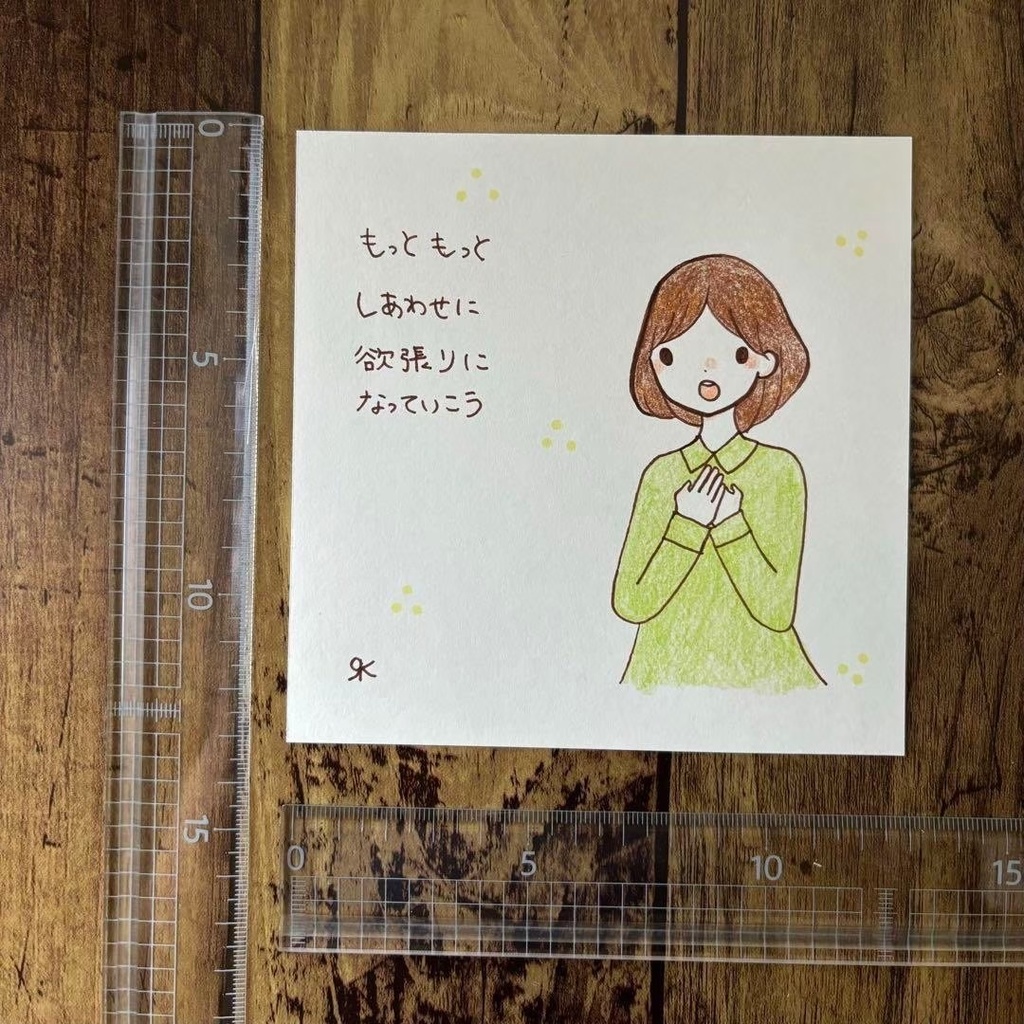 もっと もっと
しあわせに
欲張りに
なっていこう
0
5
10
15
0
5
10
15